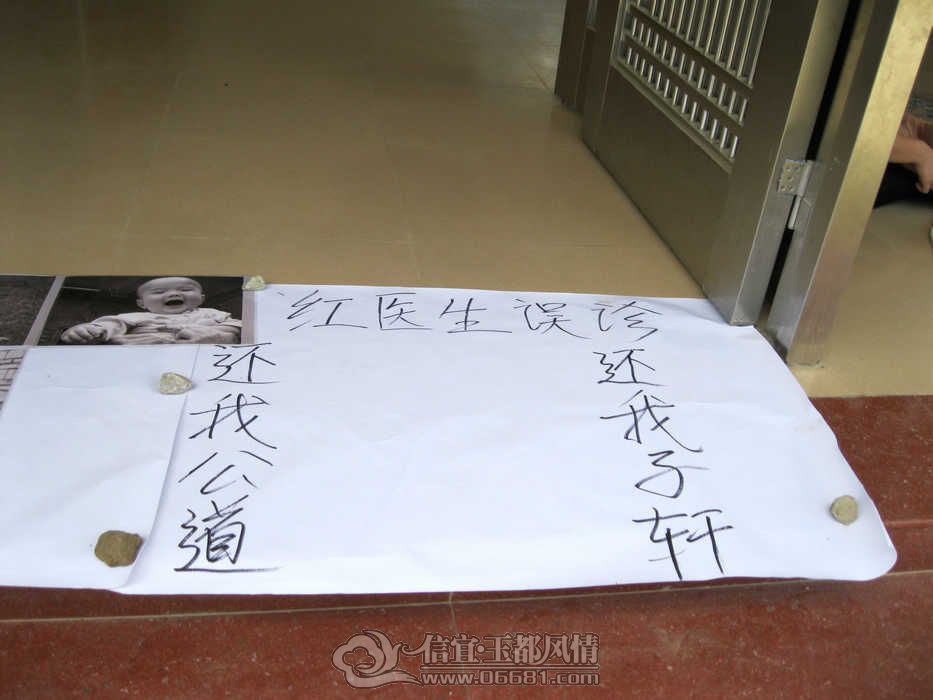 红医生误诊
还我子轩
还我公道
信宜·玉都风情
www.06681.com